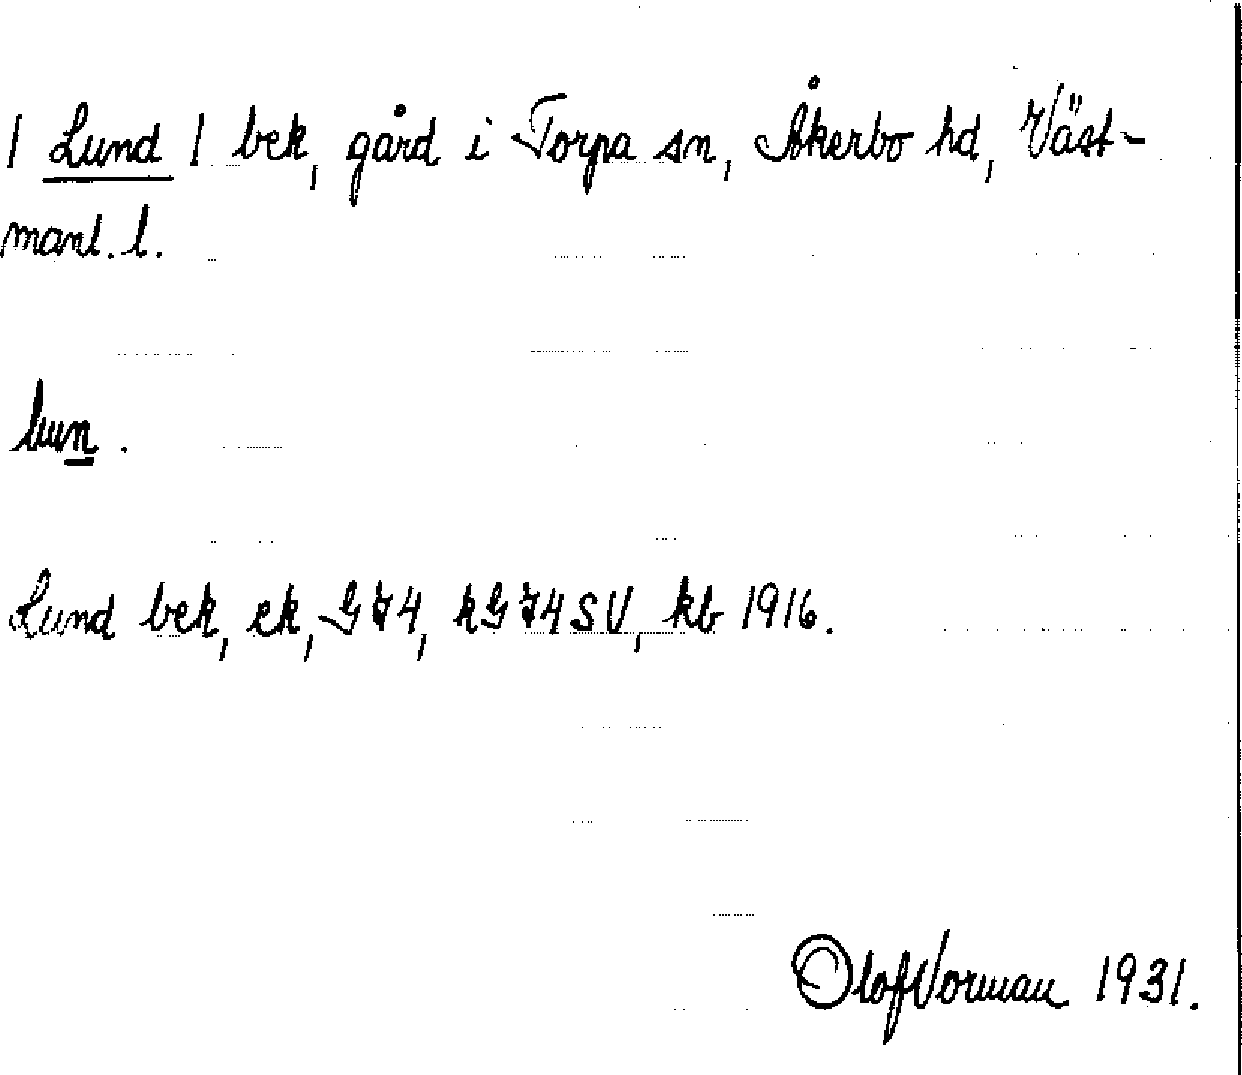 / Lund / bek, gård i Torpa sn, Åkerbo hd, Väst-
manl. l.
lun.
Lund bek, ek, GJ4, kGJ4SV, kb 1916.
Olof Vorman 1931.